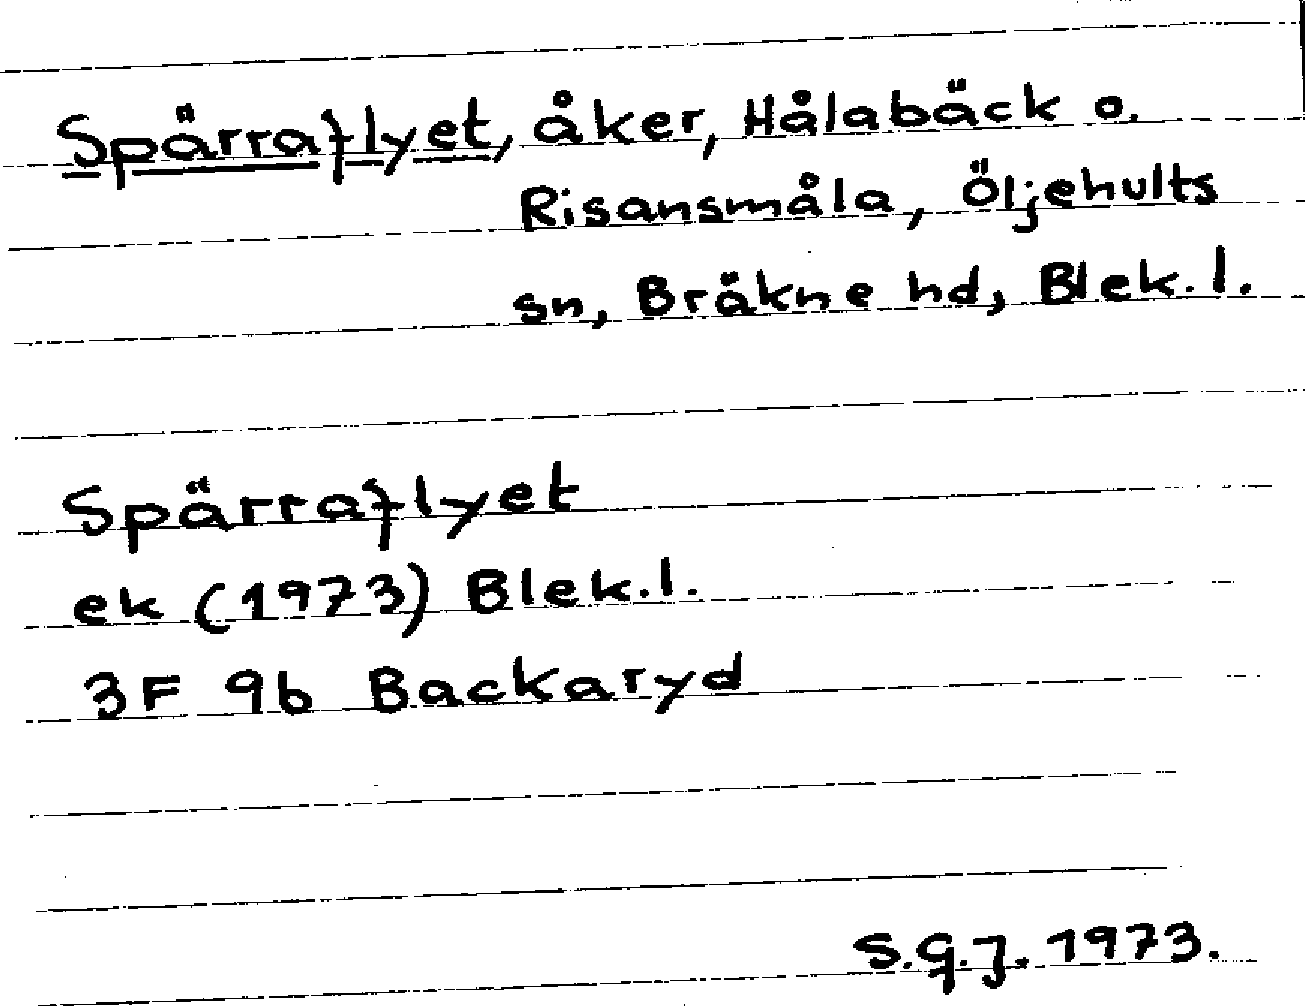 Spärraflyet, åker, Hålabäck o.
Risansmåla, Öljehults
sn, Bräkne hd, Blek.l.
Spärraflyet
ek (1973) Blek.l.
3F 9b Backaryd
S.G.J. 1973.